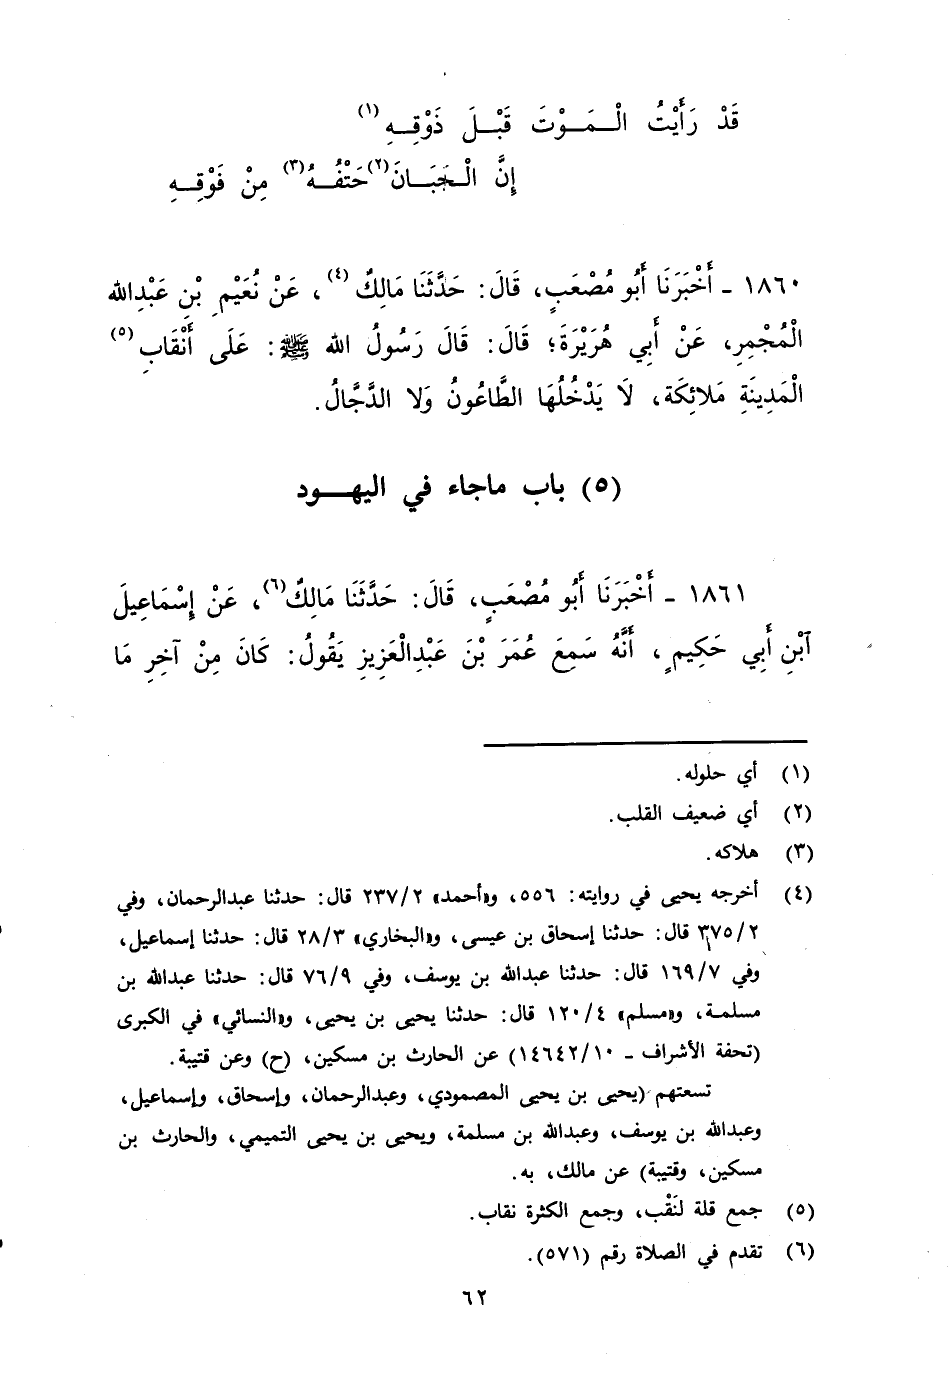 قَدْ رَأَيْتُ الْمَوْتَ قَبْلَ ذَوْقِهِ (١)
إِنَّ الْجَبَانَ (٢) حَتْفُهُ (٣) مِنْ فَوْقِهِ
١٨٦٠ - أَخْبَرَنَا أَبُو مُصْعَبٍ، قَالَ: حَدَّثَنَا مَالِكٌ (٤)، عَنْ نُعَيْمِ بْنِ عَبْدِالله
الْمُجْمِرِ، عَنْ أَبِي هُرَيْرَةَ؛ قَالَ: قَالَ رَسُولُ الله ﷺ: عَلَى أَنْقَابِ (٥)
الْمَدِينَةِ مَلَائِكَة، لَا يَدْخُلُهَا الطَّاعُونُ وَلا الدَّجَّالُ.
(٥) باب ماجاء في اليهود
١٨٦١ - أَخْبَرَنَا أَبُو مُصْعَبٍ، قَالَ: حَدَّثَنَا مَالِكٌ (٦)، عَنْ إِسْمَاعِيلَ
آبْنِ أَبِي حَكِيمٍ، أَنَّهُ سَمِعَ عُمَرَ بْنَ عَبْدِالْعَزِيزِ يَقُولُ: كَانَ مِنْ آخِرِ مَا
(١) أي حلوله.
(٢) أي ضعيف القلب.
(٣) هلاكه.
(٤) أخرجه يحيى في روايته: ٥٥٦، و«أحمد» ٢٣٧/٢ قال: حدثنا عبدالرحمان، وفي
٣٧٥/٢ قال: حدثنا إسحاق بن عيسى، و«البخاري» ٢٨/٣ قال: حدثنا إسماعيل،
وفي ١٦٩/٧ قال: حدثنا عبدالله بن يوسف، وفي ٧٦/٩ قال: حدثنا عبدالله بن
مسلمة، و«مسلم» ١٢٠/٤ قال: حدثنا يحيى بن يحيى، و«النسائي» في الكبرى
(تحفة الأشراف - ١٤٦٤٢/١٠) عن الحارث بن مسكين، (ح) وعن قتيبة.
تسعتهم (يحيى بن يحيى المصمودي، وعبدالرحمان، وإسحاق، وإسماعيل،
وعبدالله بن يوسف، وعبدالله بن مسلمة، ويحيى بن يحيى التميمي، والحارث بن
مسكين، وقتيبة) عن مالك، به.
(٥) جمع قلة لنَقْب، وجمع الكثرة نقاب.
(٦) تقدم في الصلاة رقم (٥٧١).
٦٢